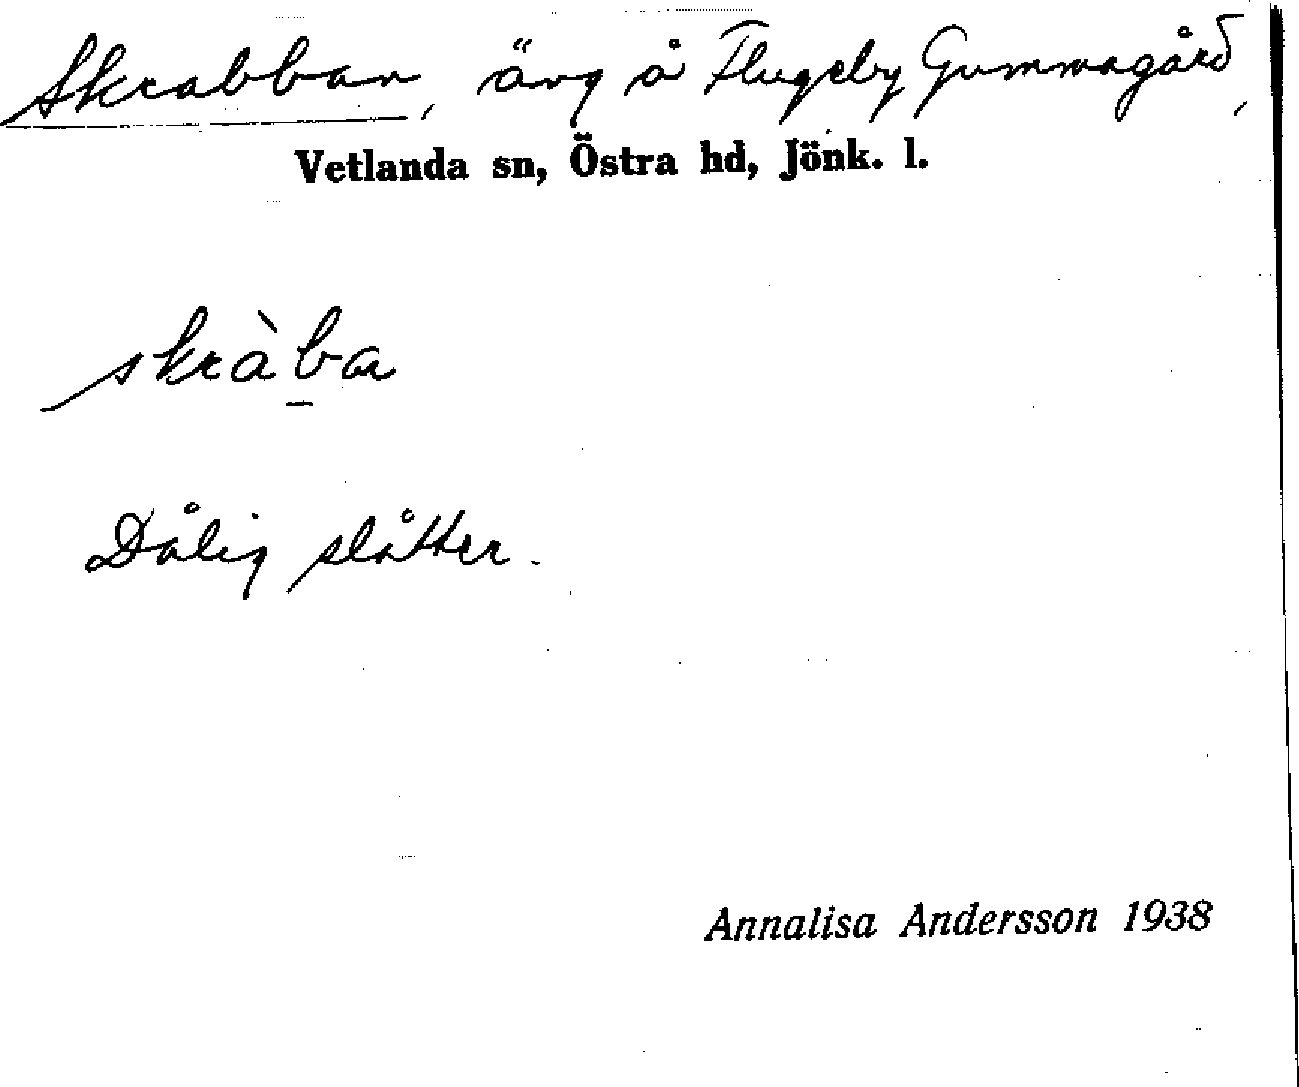 Skrabban, äng å Flugeby Gummagård,
Vetlanda sn, Östra hd, Jönk. l.
skràb̲a
Dålig slåtter.
Annalisa Andersson 1938